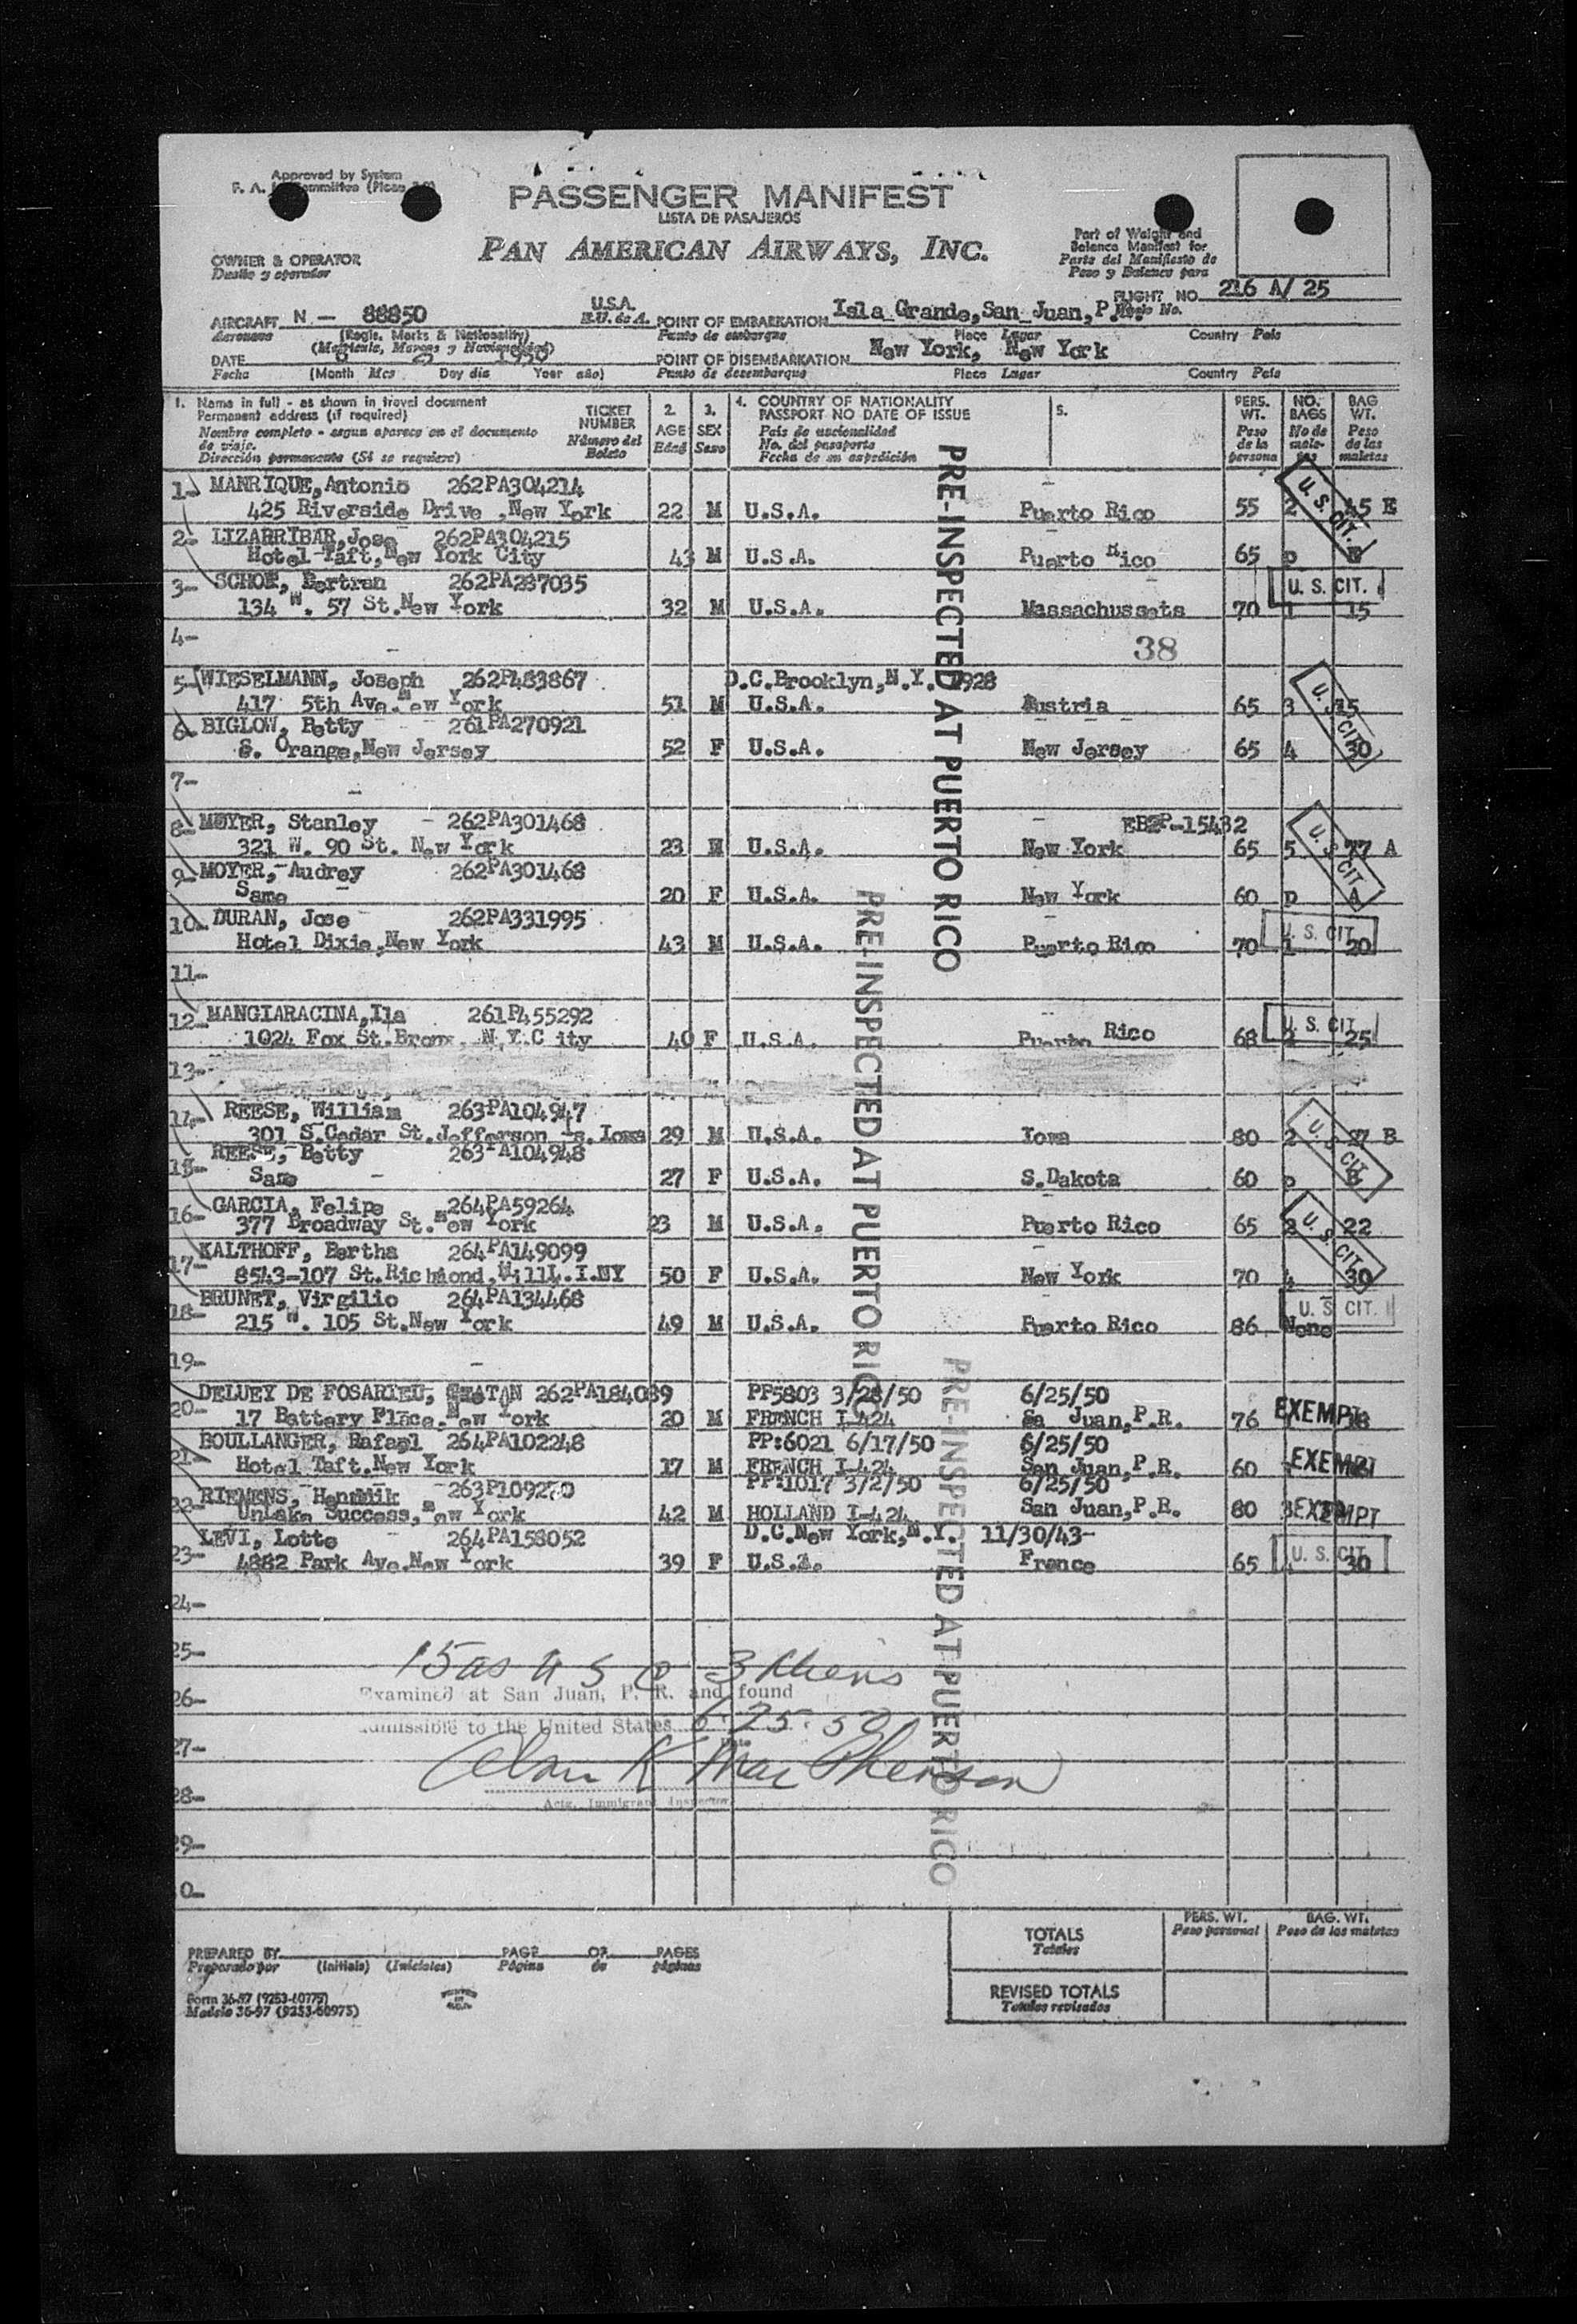 Approved by System
PASSENGER MANIFEST
LISTA DE PASAJEROS
PAN AMERICAN AIRWAYS, INC.
OWNER & OPERATOR
Dueño y operador
Part of Weight and
Balance Manifest for
Parte del Manifiesto de
Peso y Balance para
FLIGHT NO. 216 A/ 25
AIRCRAFT N - 88850 U.S.A.
Aeronave E.U. de A.
(Regis. Marks & Nationality)
POINT OF EMBARKATION Isla Grande, San Juan, P.R.
Punto de embarque Place Lugar Country País
DATE 1950
Fecha (Month Mes Day día Year año)
POINT OF DISEMBARKATION New York, New York
Punto de desembarque Place Lugar Country País
1. Name in full - as shown in travel document
Permanent address (if required)
Nombre completo - segun aparece en el documento
de viaje.
Dirección permanente (Si se requiere)
TICKET NUMBER
Número del Boleto
2. AGE Edad
3. SEX Sexo
4. COUNTRY OF NATIONALITY
PASSPORT NO DATE OF ISSUE
País de nacionalidad
No. del pasaporte
Fecha de su expedición
5.
PERS. WT.
Peso de la persona
NO. BAGS
No de male-tas
BAG WT.
Peso de las maletas
1- MANRIQUE, Antonio 262PA304214
425 Riverside Drive, New York 22 M U.S.A. Puerto Rico 55 2 45 E
2- LIZARRIBAR, Jose 262PA304215
Hotel Taft, New York City 43 M U.S.A. Puerto Rico 65 p E
3- Bertran 262PA287035
134 W. 57 St. New York 32 M U.S.A. Massachussets 70 1 15
4-
38
5- WIESELMANN, Joseph 262P483867 D.C. Brooklyn, N.Y. 1928
417 5th Ave. New York 51 M U.S.A. Austria 65 3
6- BIGLOW, Petty 261PA270921
S. Orange, New Jersey 52 F U.S.A. New Jersey 65 4 30
7-
8- MOYER, Stanley 262PA301468
321 W. 90 St. New York 23 M U.S.A. New York 65 5 77 A
9- MOYER, Audrey 262PA301468
Same 20 F U.S.A. New York 60 p A
10- DURAN, Jose 262PA331995
Hotel Dixie, New York 43 M U.S.A. Puerto Rico 70 1 20
11-
12- MANGIARACINA, Ila 261P455292
1024 Fox St. Bronx, N.Y.C ity 40 F U.S.A. Puerto Rico 68 2 25
13-
14- REESE, William 263PA104947
301 S. Cedar St. Jefferson Iowa 29 M U.S.A. Iowa 80 2 27 B
15- REESE, Betty 263PA104948
Same 27 F U.S.A. S. Dakota 60 p B
16- GARCIA, Felipe 264PA59264
377 Broadway St. New York 23 M U.S.A. Puerto Rico 65 2 22
17- KALTHOFF, Bertha 264PA149099
8543-107 St. Richmond, Hill L.I. NY 50 F U.S.A. New York 70 4 30
18- BRUNET, Virgilio 264PA134468
215 W. 105 St. New York 49 M U.S.A. Puerto Rico 86 None
19-
20- DELUEY DE FOSARIEU, 262PA184089 PP5803 3/28/50 6/25/50
17 Battery Place, New York 20 M FRENCH I-424 Sa Juan, P.R. 76
21- BOULLANGER, Rafael 264PA102248 PP:6021 6/17/50 6/25/50
Hotel Taft. New York 17 M FRENCH I-424 San Juan, P.R. 60
22- RIEMENS, 263P109270 PP:1017 3/2/50 6/25/50
Lake Success, New York 42 M HOLLAND I-424 San Juan, P.R. 80 3
23- LEVI, Lotte 264PA158052 D.C. New York, N.Y. 11/30/43-
4882 Park Ave. New York 39 F France 65 30
24-
25-
26-
27-
28-
29-
U. S. CIT.
U. S. CIT.
U. S. CIT.
U. S. CIT.
U. S. CIT.
U. S. CIT.
U. S. CIT.
U. S. CIT.
U. S. CIT.
EXEMPT
EXEMPT
EXEMPT
U. S. CIT.
PRE-INSPECTED AT PUERTO RICO
PRE-INSPECTED AT PUERTO RICO
PRE-INSPECTED AT PUERTO RICO
15 as U S C 3 Aliens
Examined at San Juan, P. R. and found
admissible to the United States 6-25-50
Date
Alan K MacPherson
Actg. Immigrant Inspector
TOTALS
Totales
PERS. WT.
Peso personal
BAG. WT.
Peso de las maletas
REVISED TOTALS
Totales revisados
PREPARED BY PAGE OF PAGES
Preparado por (Initials) (Iniciales) Página de páginas
Form 36-97 (9253-60975)
Modelo 36-97 (9253-60975)